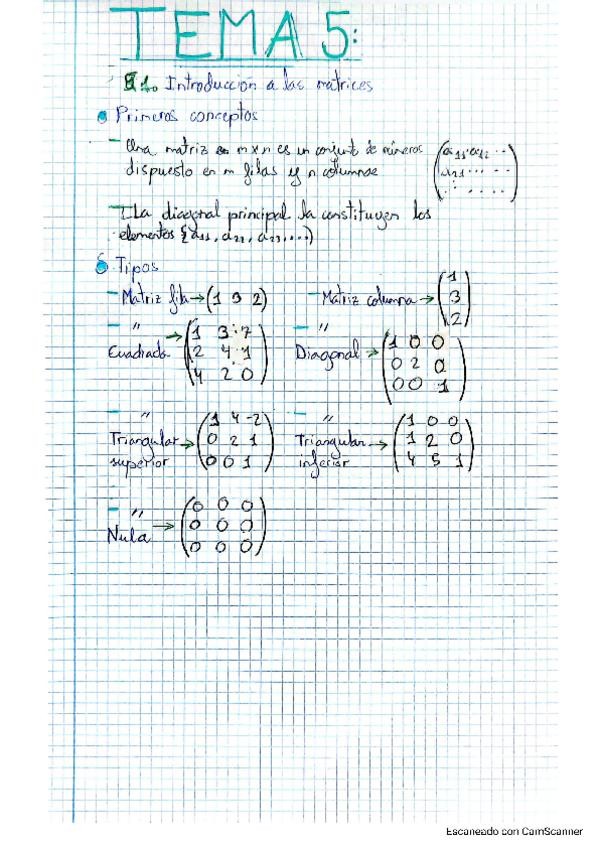 TEMA 5:
1. Introducción a las matrices
Primeros conceptos
- Una matriz m x n es un conjunto de números
dispuesto en m filas y n columnas
(a11 a12 ...
a21 ... ...
... )
- La diagonal principal la constituyen los
elementos {a11, a22, a33, ...)
Tipos
- Matriz fila → (1 3 2)
- Matriz columna → (1
3
2)
- " Cuadrada → (1 3 7
2 4 1
4 2 0)
- " Diagonal → (1 0 0
0 2 0
0 0 1)
- " Triangular superior → (1 4 -2
0 2 1
0 0 1)
- " Triangular inferior → (1 0 0
1 2 0
4 5 1)
- " Nula → (0 0 0
0 0 0
0 0 0)
Escaneado con CamScanner